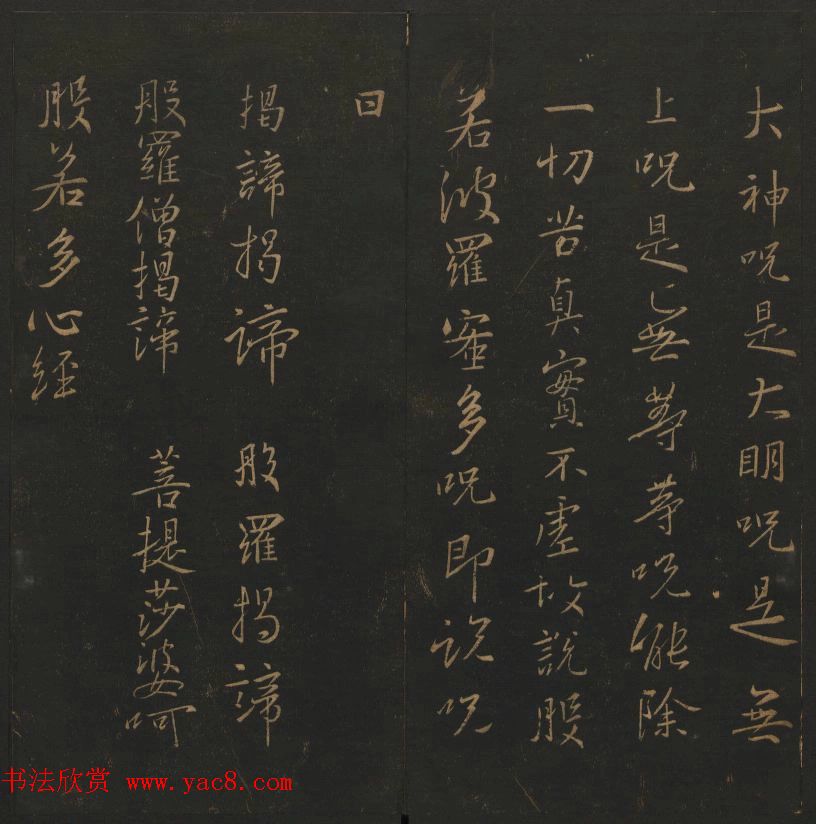 大神呪是大明呪是無
上呪是無等等呪能除
一切苦真實不虛故說般
若波羅蜜多呪即說呪
曰
揭諦揭諦 般羅揭諦
般羅僧揭諦 菩提莎婆呵
般若多心經
书法欣赏 www.yac8.com